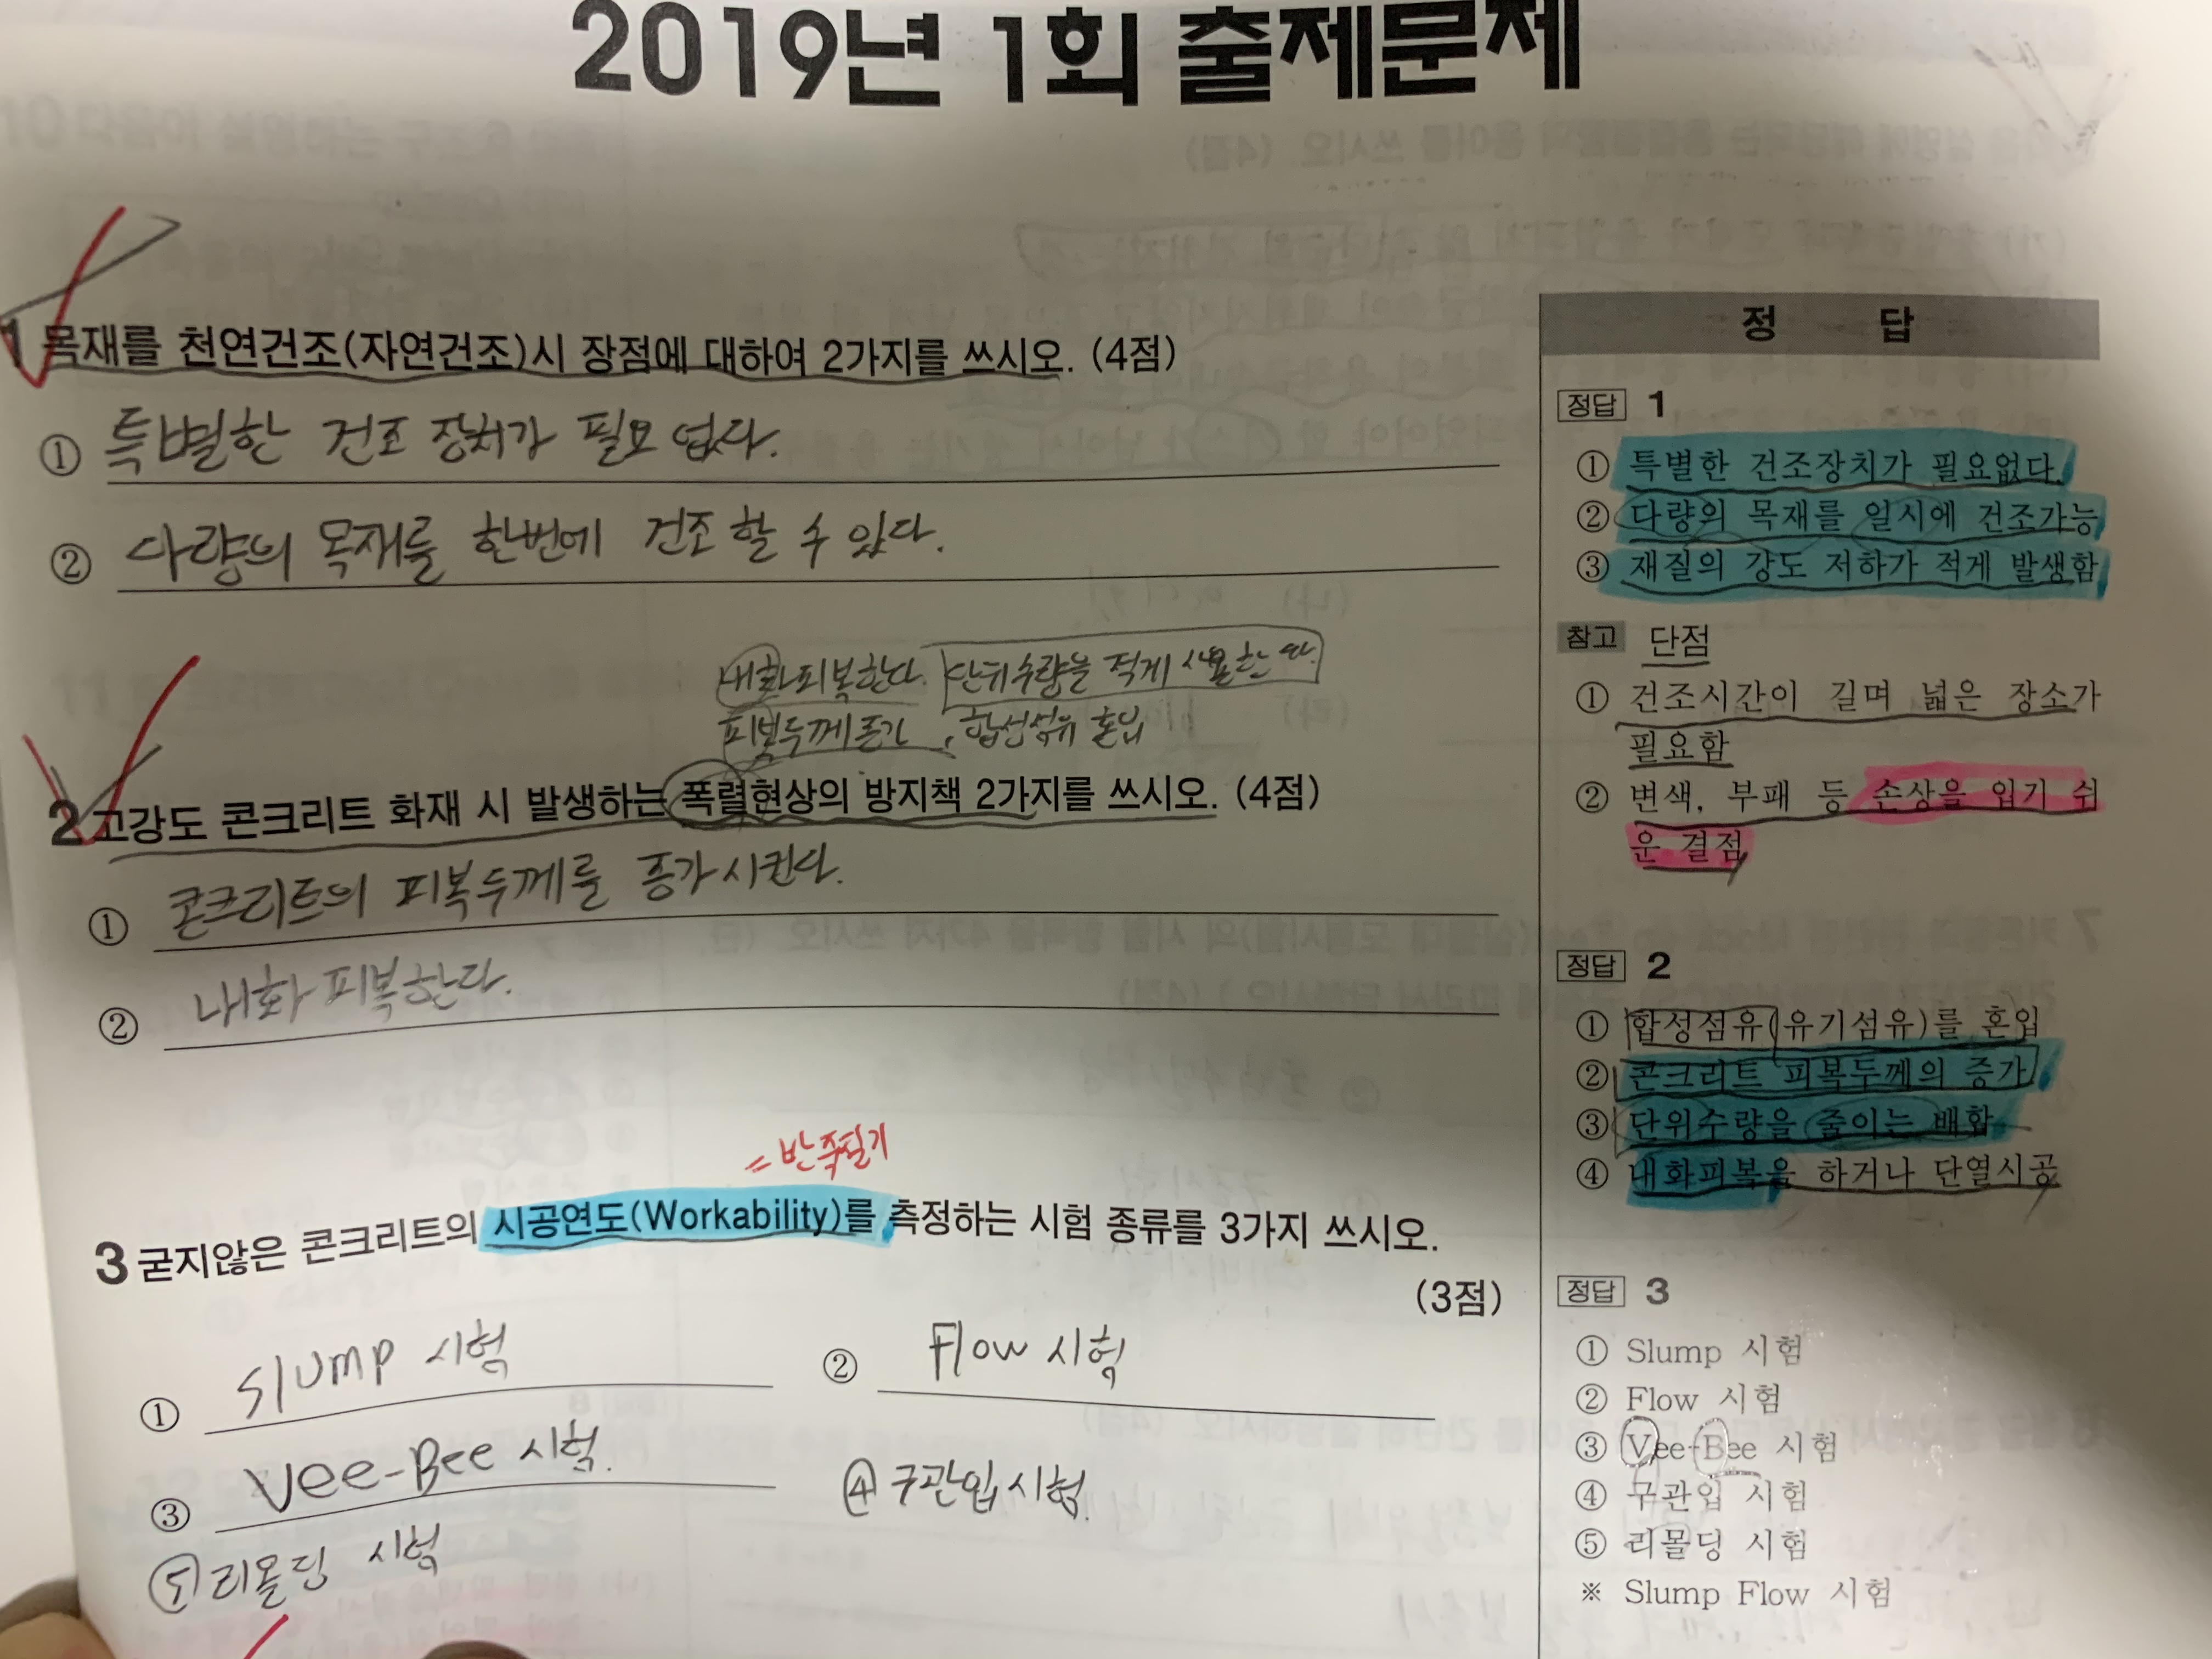 2019년 1회 출제문제
1 목재를 천연건조(자연건조)시 장점에 대하여 2가지를 쓰시오. (4점)
① 특별한 건조 장치가 필요 없다.
② 다량의 목재를 한번에 건조 할 수 있다.
내화피복한다. 단위수량을 적게 사용한다.
피복두께증가, 합성섬유 혼입
2 고강도 콘크리트 화재 시 발생하는 폭렬현상의 방지책 2가지를 쓰시오. (4점)
① 콘크리트의 피복두께를 증가시킨다.
② 내화피복한다.
= 반죽질기
3 굳지않은 콘크리트의 시공연도(Workability)를 측정하는 시험 종류를 3가지 쓰시오.
(3점)
① Slump 시험
② Flow 시험
③ Vee-Bee 시험.
④ 구관입시험.
⑤ 리몰딩 시험
정 답
정답 1
① 특별한 건조장치가 필요없다.
② 다량의 목재를 일시에 건조가능
③ 재질의 강도 저하가 적게 발생함
참고 단점
① 건조시간이 길며 넓은 장소가
필요함
② 변색, 부패 등 손상을 입기 쉬
운 결점
정답 2
① 합성섬유(유기섬유)를 혼입
② 콘크리트 피복두께의 증가
③ 단위수량을 줄이는 배합
④ 내화피복을 하거나 단열시공
정답 3
① Slump 시험
② Flow 시험
③ Vee-Bee 시험
④ 구관입 시험
⑤ 리몰딩 시험
※ Slump Flow 시험